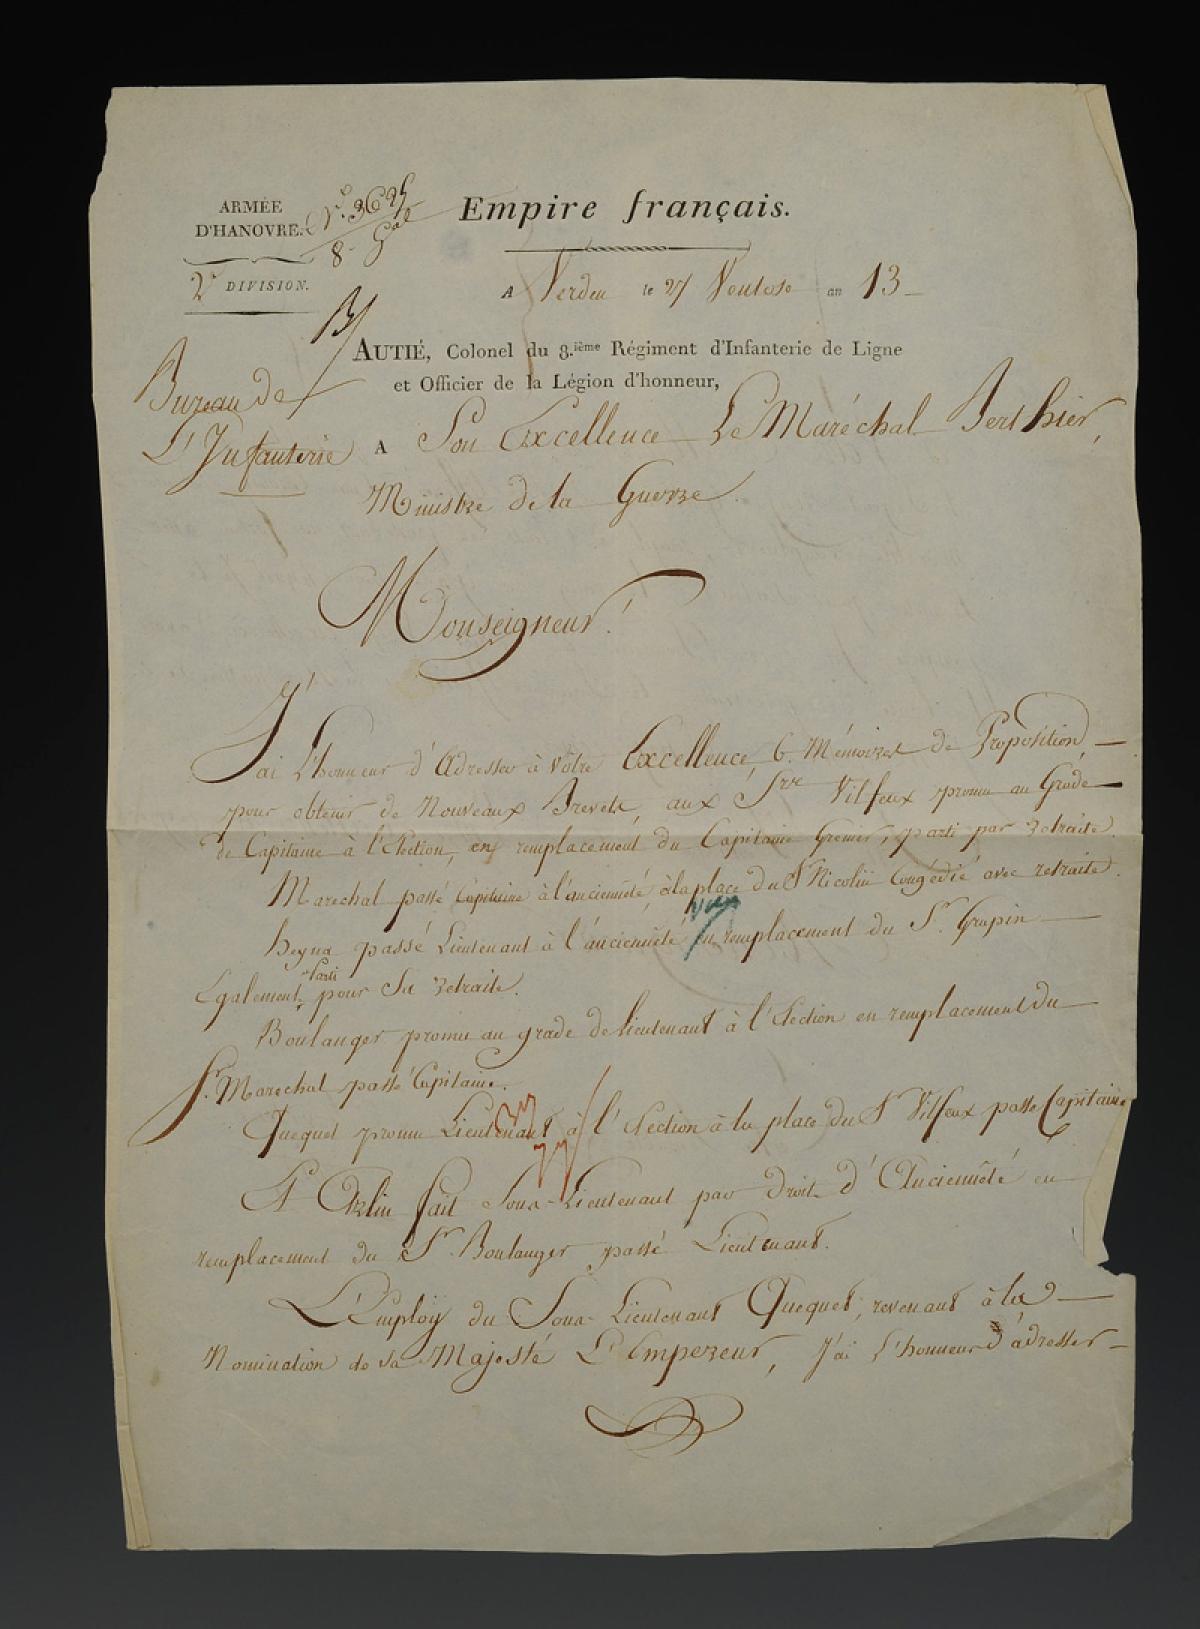 ARMÉE
D'HANOVRE.
N.º 3625
8. Gal
2e DIVISION.
Empire français.
A Verden le 27 Ventose an 13
AUTIÉ, Colonel du 8.ième Régiment d'Infanterie de Ligne
et Officier de la Légion d'honneur,
Bureau de
L'Infanterie
A Son Excellence Le Maréchal Berthier,
Ministre de la Guerre.
Monseigneur!
J'ai L'honneur d'Adresser à Votre Excellence, 6. Mémoires de Proposition,
pour obtenir de Nouveaux Brevets, aux Srs Vilfeux promu au Grade
de Capitaine à l'Election, en remplacement du Capitaine Grenier, parti par retraite.
Marechal passé Capitaine à l'ancienneté, à la place du Sr Nicolin Congédié avec retraite.
heyna passé Lieutenant à l'ancienneté en remplacement du Sr. Grapin
Egalement parti pour Sa retraite.
Boulanger promu au grade de lieutenant à l'Election en remplacement du
Sr. Marechal passé Capitaine.
Quequet promu Lieutenant à l'Election à la place du Sr Vilfeux passé Capitaine
Sr Arlin fait Sous-Lieutenant par droit d'Ancienneté en
remplacement du Sr. Boulanger passé Lieutenant.
L'Employ du Sous-Lieutenant Quequet, revenant à la
Nomination de sa Majesté L'Empereur, J'ai L'honneur d'adresser